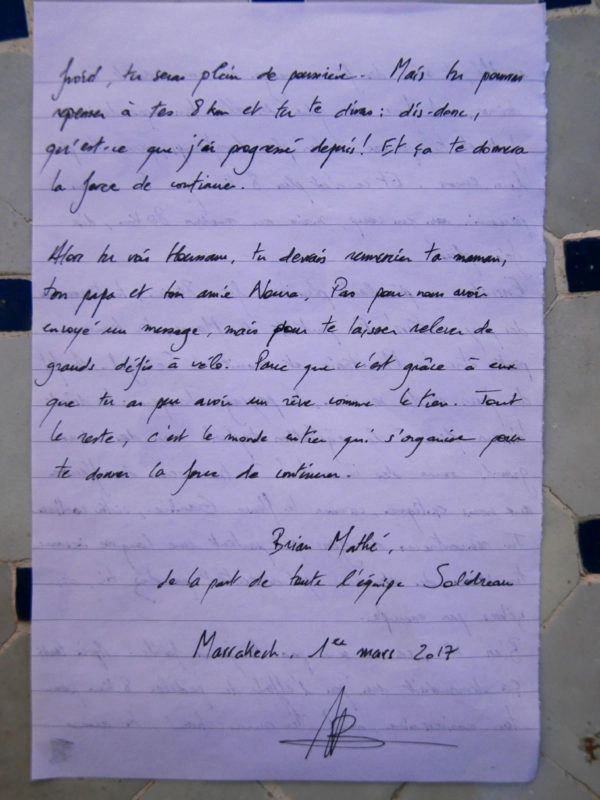 froid, tu seras plein de poussière. Mais tu pourras
repenser à tes 8 km et tu te diras : dis-donc,
qu'est-ce que j'ai progressé depuis ! Et ça te donnera
la force de continuer.
Alors tu vois Houssam, tu devrais remercier ta maman,
ton papa et ton amie Noura. Pas pour nous avoir
envoyé un message, mais pour te laisser relever de
grands défis à vélo. Parce que c'est grâce à eux
que tu as pu avoir un rêve comme le tien. Tout
le reste, c'est le monde entier qui s'organise pour
te donner la force de continuer.
Brian Mathé,
de la part de toute l'équipe Solidreau
Marrakech, 1er mars 2017